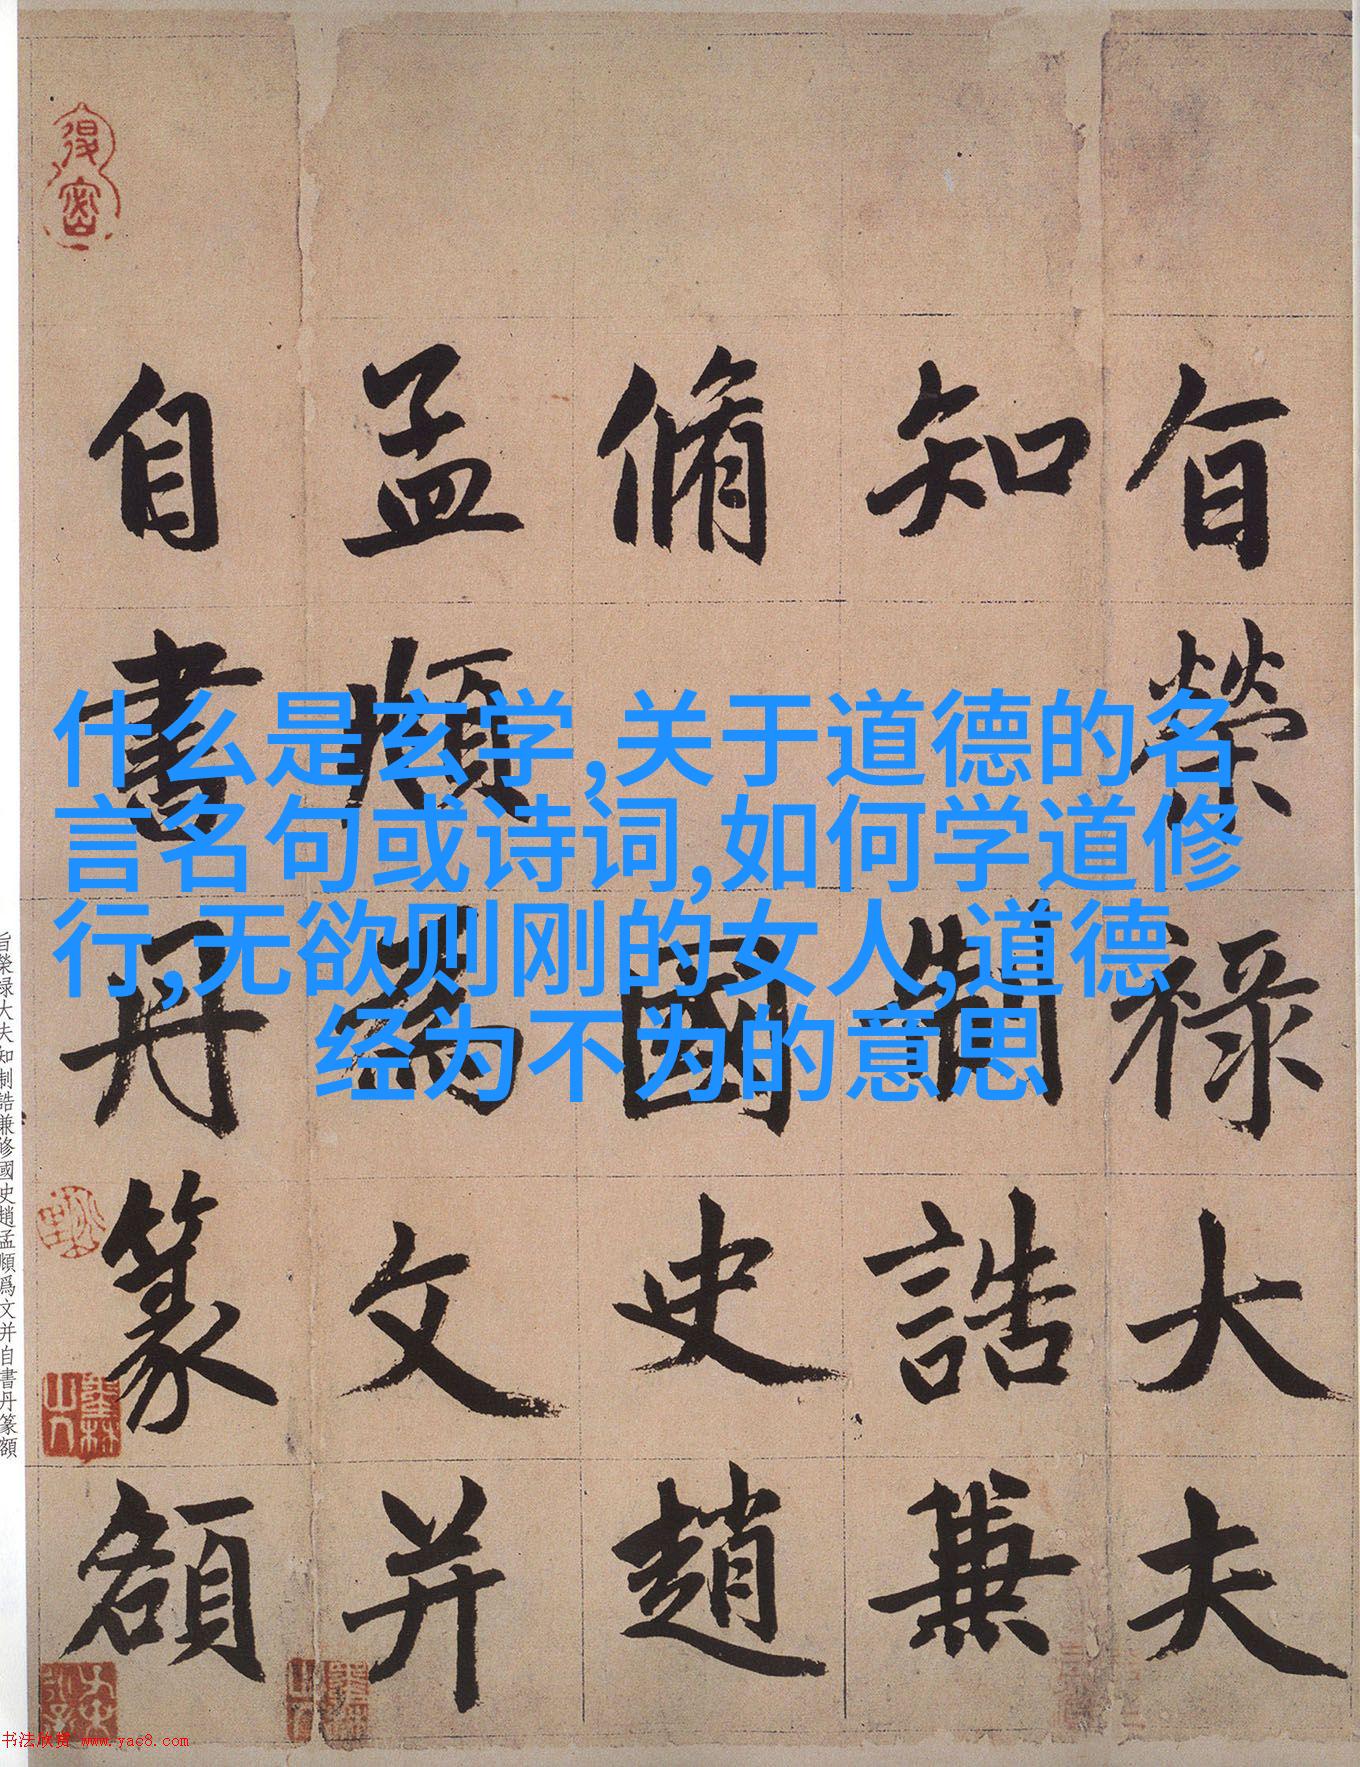 旨榮禄大夫
知制誥兼
脩國史趙
孟頫為文并
自書丹篆額
什么是玄学,关于道德的名
言名句或诗词,如何学道修
行,无欲则刚的女人,道德
经为不为的意思
旨榮禄大夫知制誥兼修國史趙孟頫爲文并自書丹篆額
书法欣赏 www.yac8.com